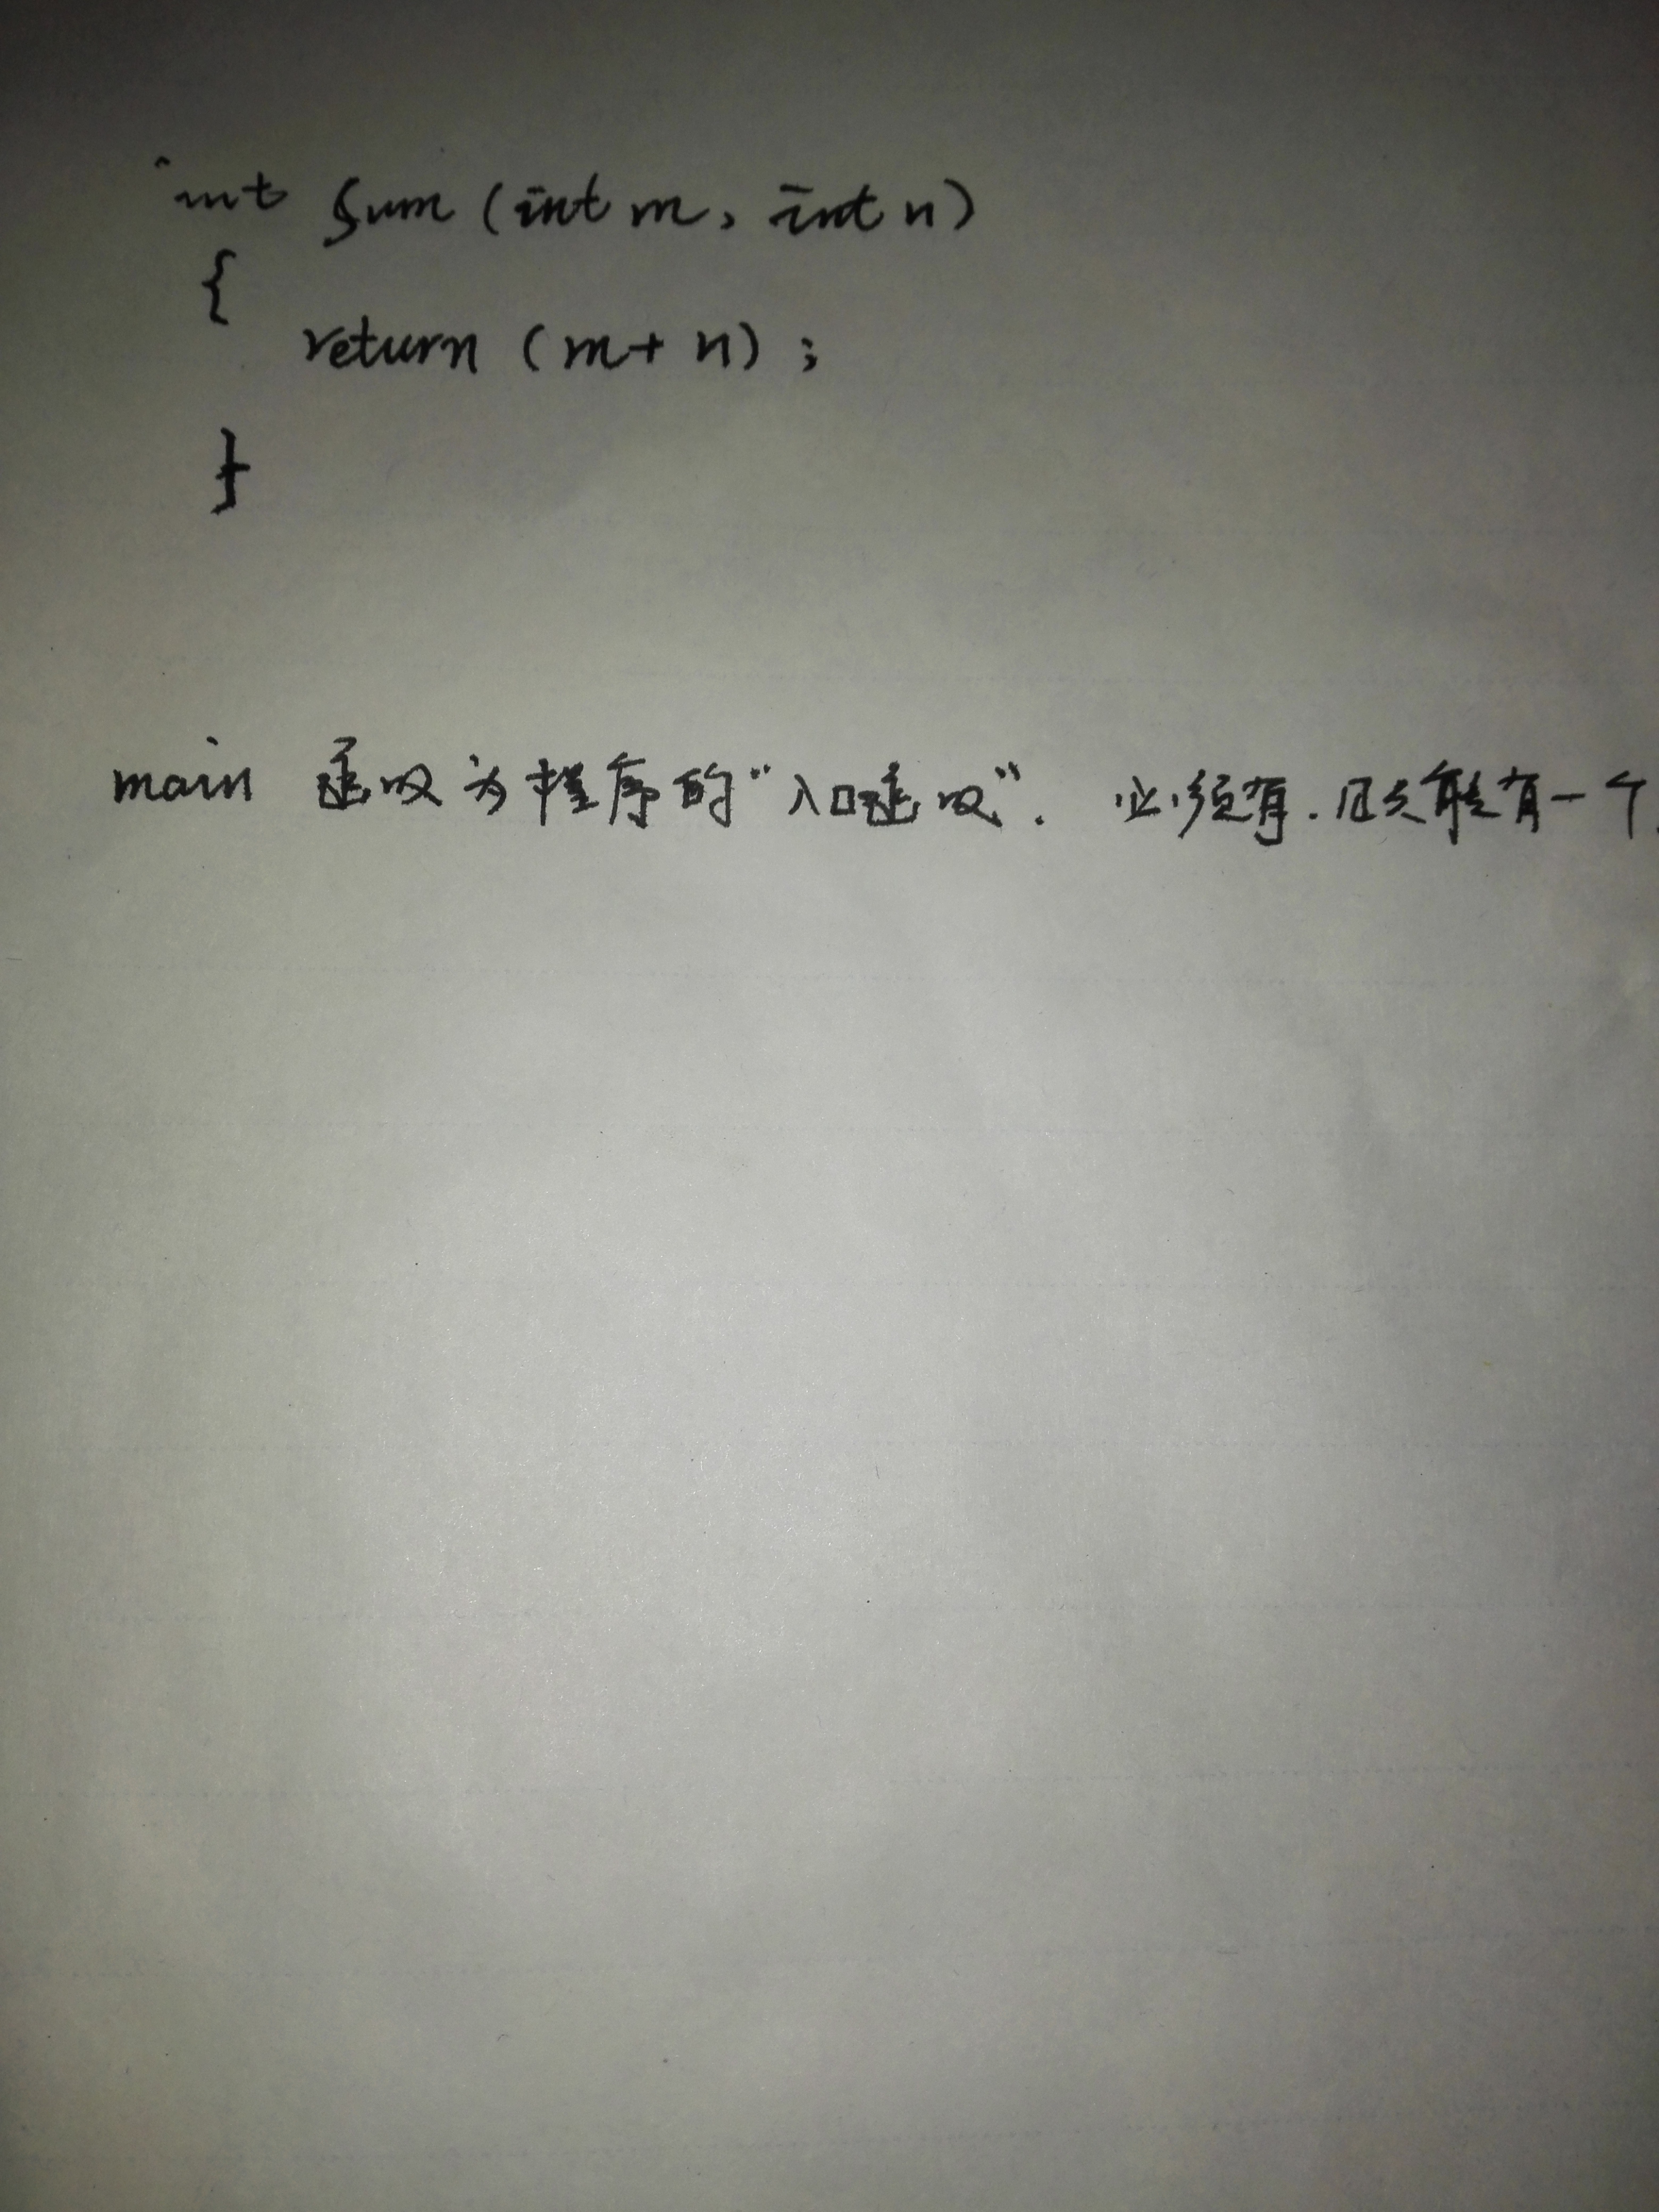 int Sum (int m, int n)
{
return (m+n);
}
main 函数为程序的“入口函数”. 必须有.且只能有一个.